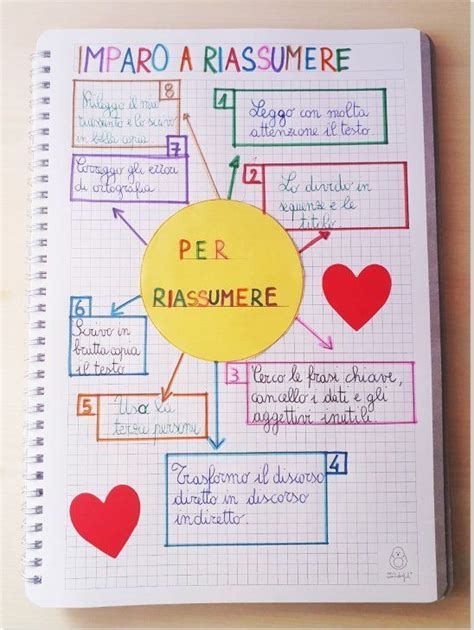 IMPARO A RIASSUMERE
PER
RIASSUMERE
1
Leggo con molta
attenzione il testo
2
Lo divido in
sequenze e le
titolo.
3
Cerco le frasi chiave,
cancello i dati e gli
aggettivi inutili.
4
Trasformo il discorso
diretto in discorso
indiretto.
5
Uso la
terza persona
6
Scrivo in
brutta copia
il testo
7
Correggo gli errori
di ortografia.
8
Rileggo il mio
riassunto e lo scrivo
in bella copia